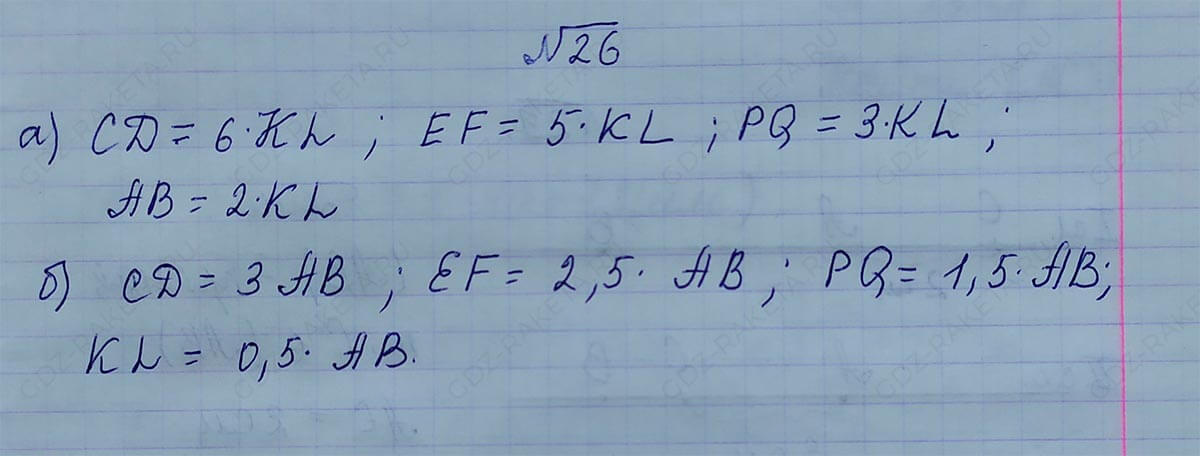 №26
а) CD = 6·KL ; EF = 5·KL ; PQ = 3·KL ;
AB = 2·KL
б) CD = 3 AB ; EF = 2,5· AB ; PQ = 1,5· AB;
KL = 0,5· AB.